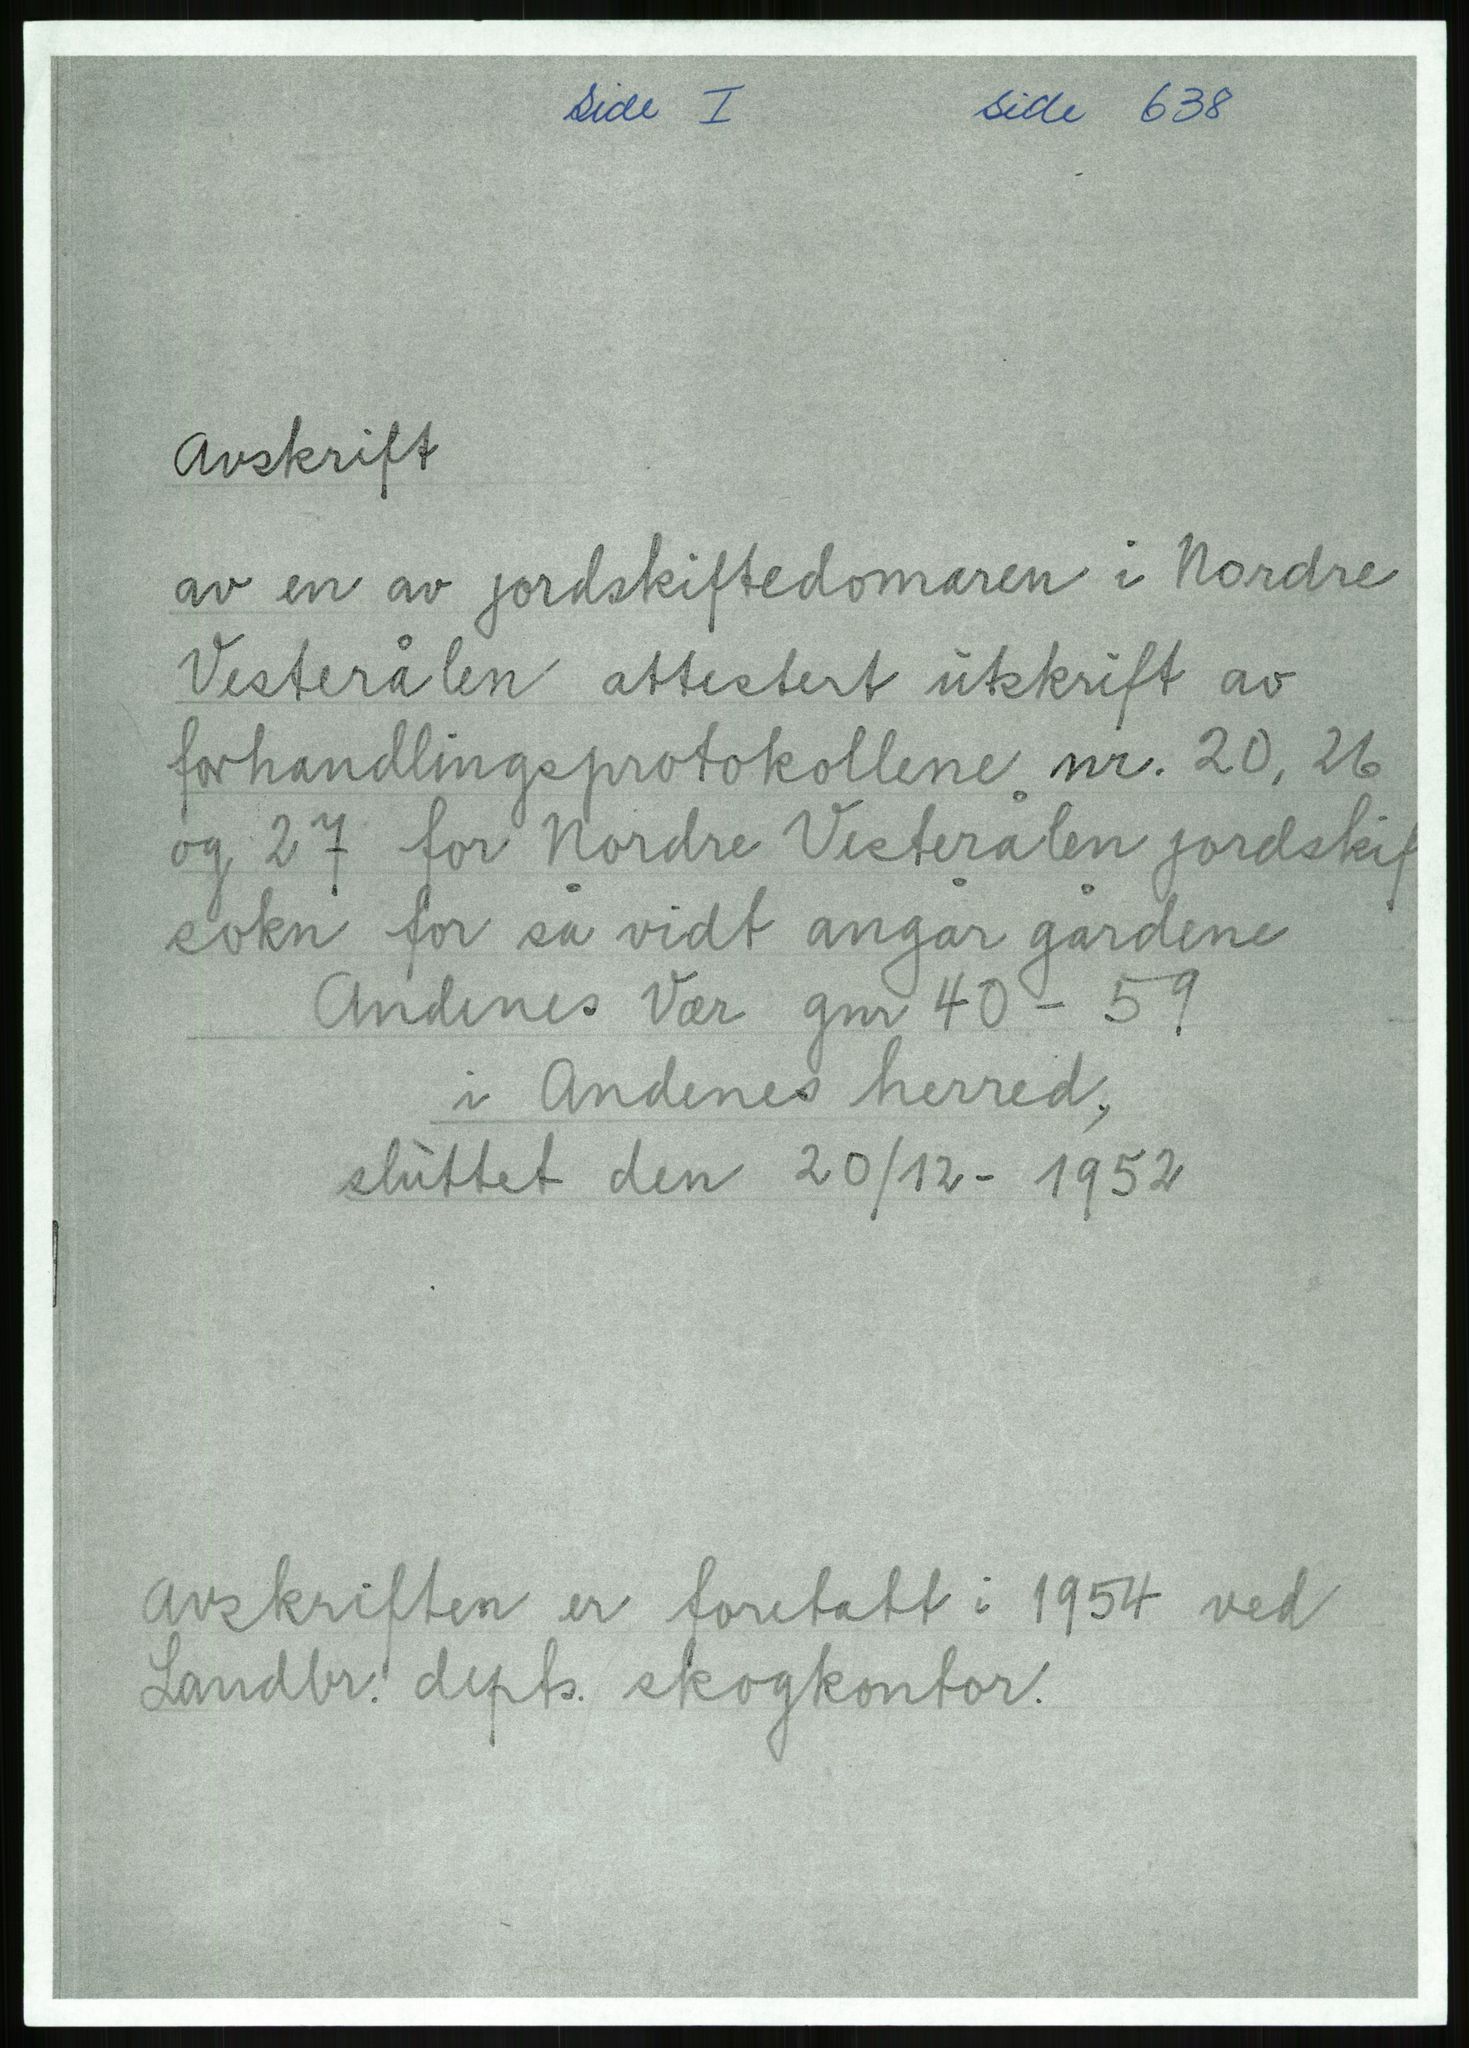 Side I side 638
Avskrift
av en av jordskiftedomaren i Nordre
Vesterålen attestert utskrift av
forhandlingsprotokollene nr. 20, 26
og 27 for Nordre Vesterålen jordskif
sokn for så vidt angår gårdene
Andenes Vær gnr 40 - 59
i Andenes herred,
sluttet den 20/12 - 1952
Avskriften er foretatt i 1954 ved
Landbr. depts. skogkontor.